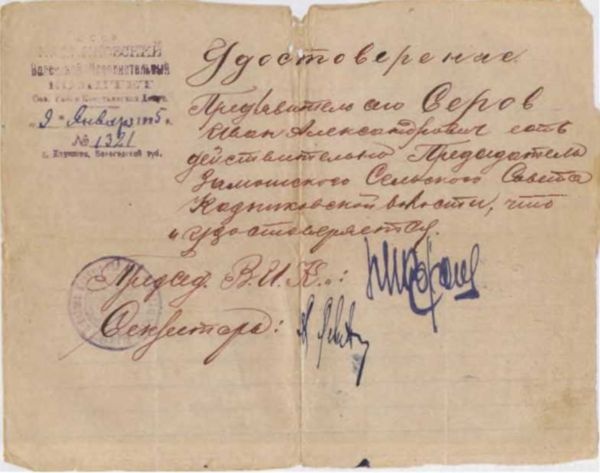 СССР
КАДНИКОВСКИЙ
Волостной Исполнительный
КОМИТЕТ
Сов. Рабоч. Крестьянских Депут.
„9“ Января 1925 г.
№ 1321
г. Кадников, Вологодской губ.
Удостоверение
Предъявитель сего Серов
Иван Александрович есть
действительно Председатель
Замошского Сельского Совета
Кадниковской волости, что
и удостоверяется.
Председ. В.И.К.:
Секретарь: